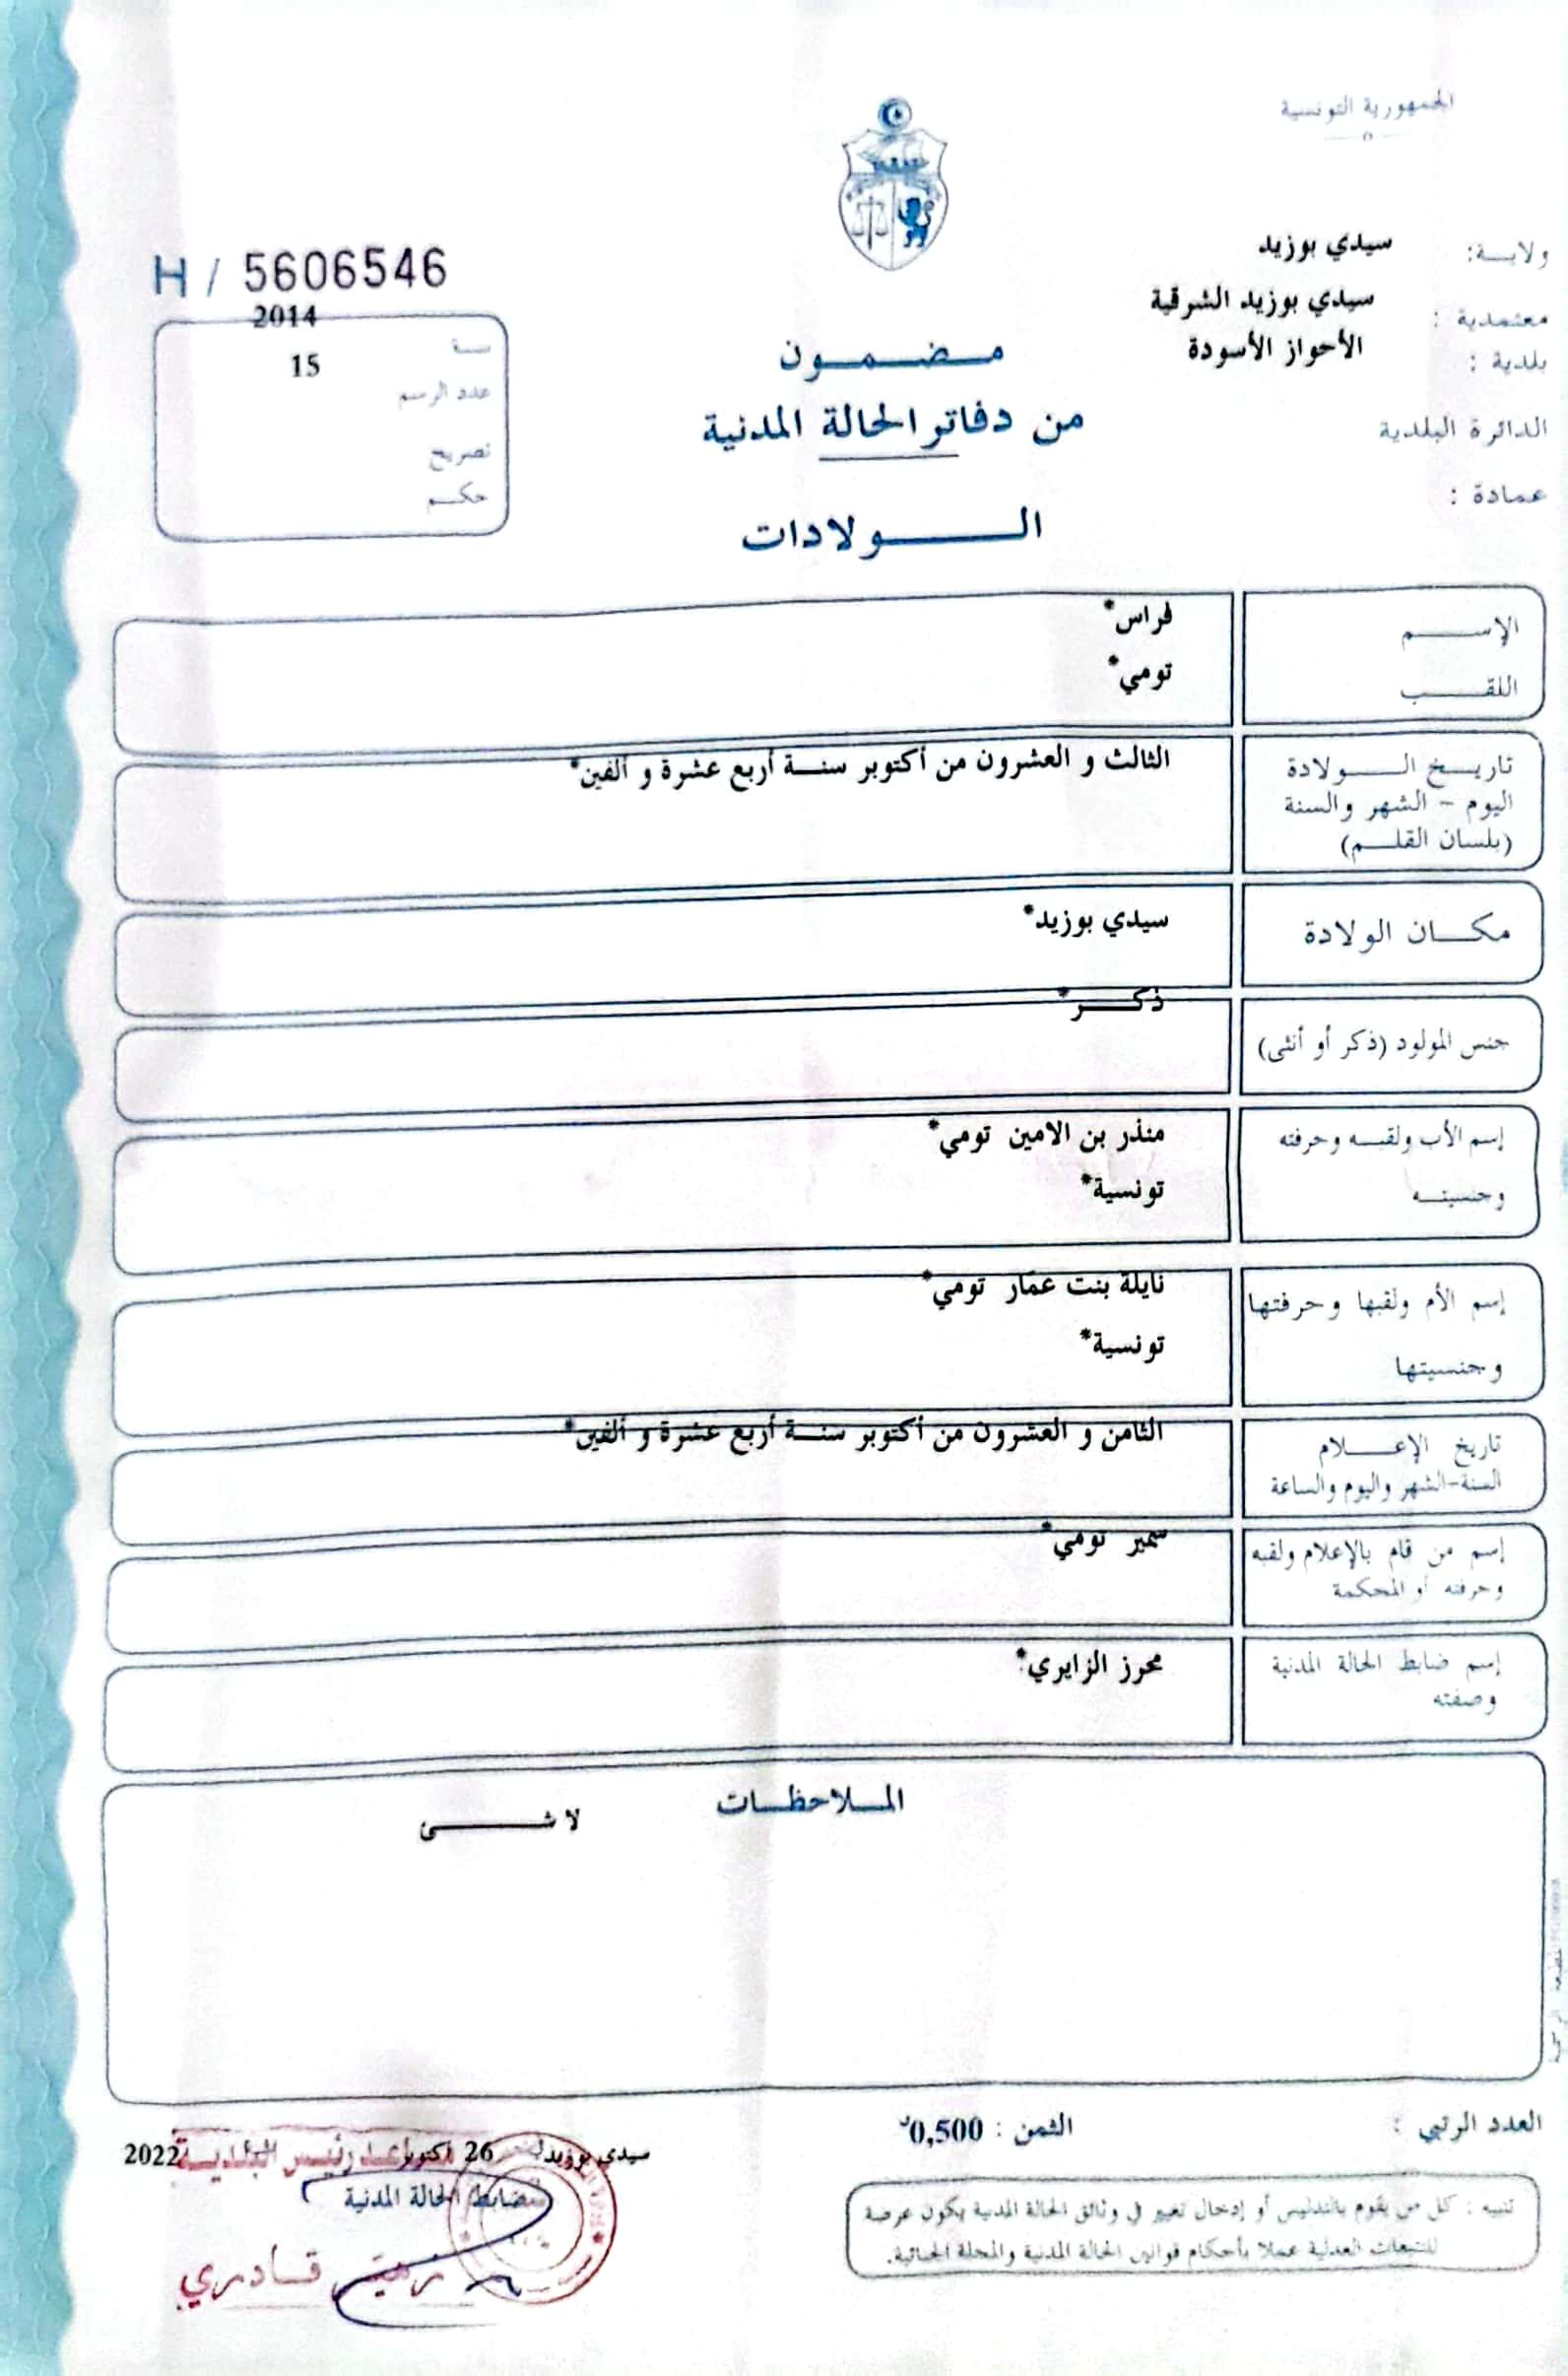 الجمهورية التونسية
ولايـــة: سيدي بوزيد
معتمدية : سيدي بوزيد الشرقية
بلدية : الأحواز الأسودة
الدائرة البلدية
عمادة :
H / 5606546
سنــة 2014
عدد الرسم 15
تصريح
حكــم
مــضــمــون
من دفاتر الحالة المدنية
الــــولادات
الإســــم فراس*
اللقــــب تومي*
تاريـــخ الــــولادة الثالث و العشرون من أكتوبر سنــة أربع عشرة و ألفين*
اليوم - الشهر والسنة
(بلسان القلـــم)
مكـــان الولادة سيدي بوزيد*
جنس المولود (ذكر أو أنثى) ذكـــر*
إسم الأب ولقبــه وحرفته منذر بن الامين تومي*
وجنسيتــه تونسية*
إسم الأم ولقبها وحرفتها نايلة بنت عمّار تومي*
وجنسيتها تونسية*
تاريخ الإعــــلام الثامن و العشرون من أكتوبر سنــة أربع عشرة و ألفين*
السنة-الشهر واليوم والساعة
إسم من قام بالإعلام ولقبه سمير تومي*
وحرفته او المحكمة
إسم ضابط الحالة المدنية محرز الزايري*
وصفته
المــلاحظــات
لا شــــــى
العدد الرتبي :
الثمن : 0,500د
سيدي بوزيد 26 أكتوبر 2022
مساعد رئيس البلديــة
ضابط الحالة المدنية
قــادري
تنبيه : كل من يقوم بالتدليس أو إدخال تغيير في وثائق الحالة المدنية يكون عرضة
للتتبعات العدلية عملا بأحكام قوانين الحالة المدنية والمجلة الجنائية.